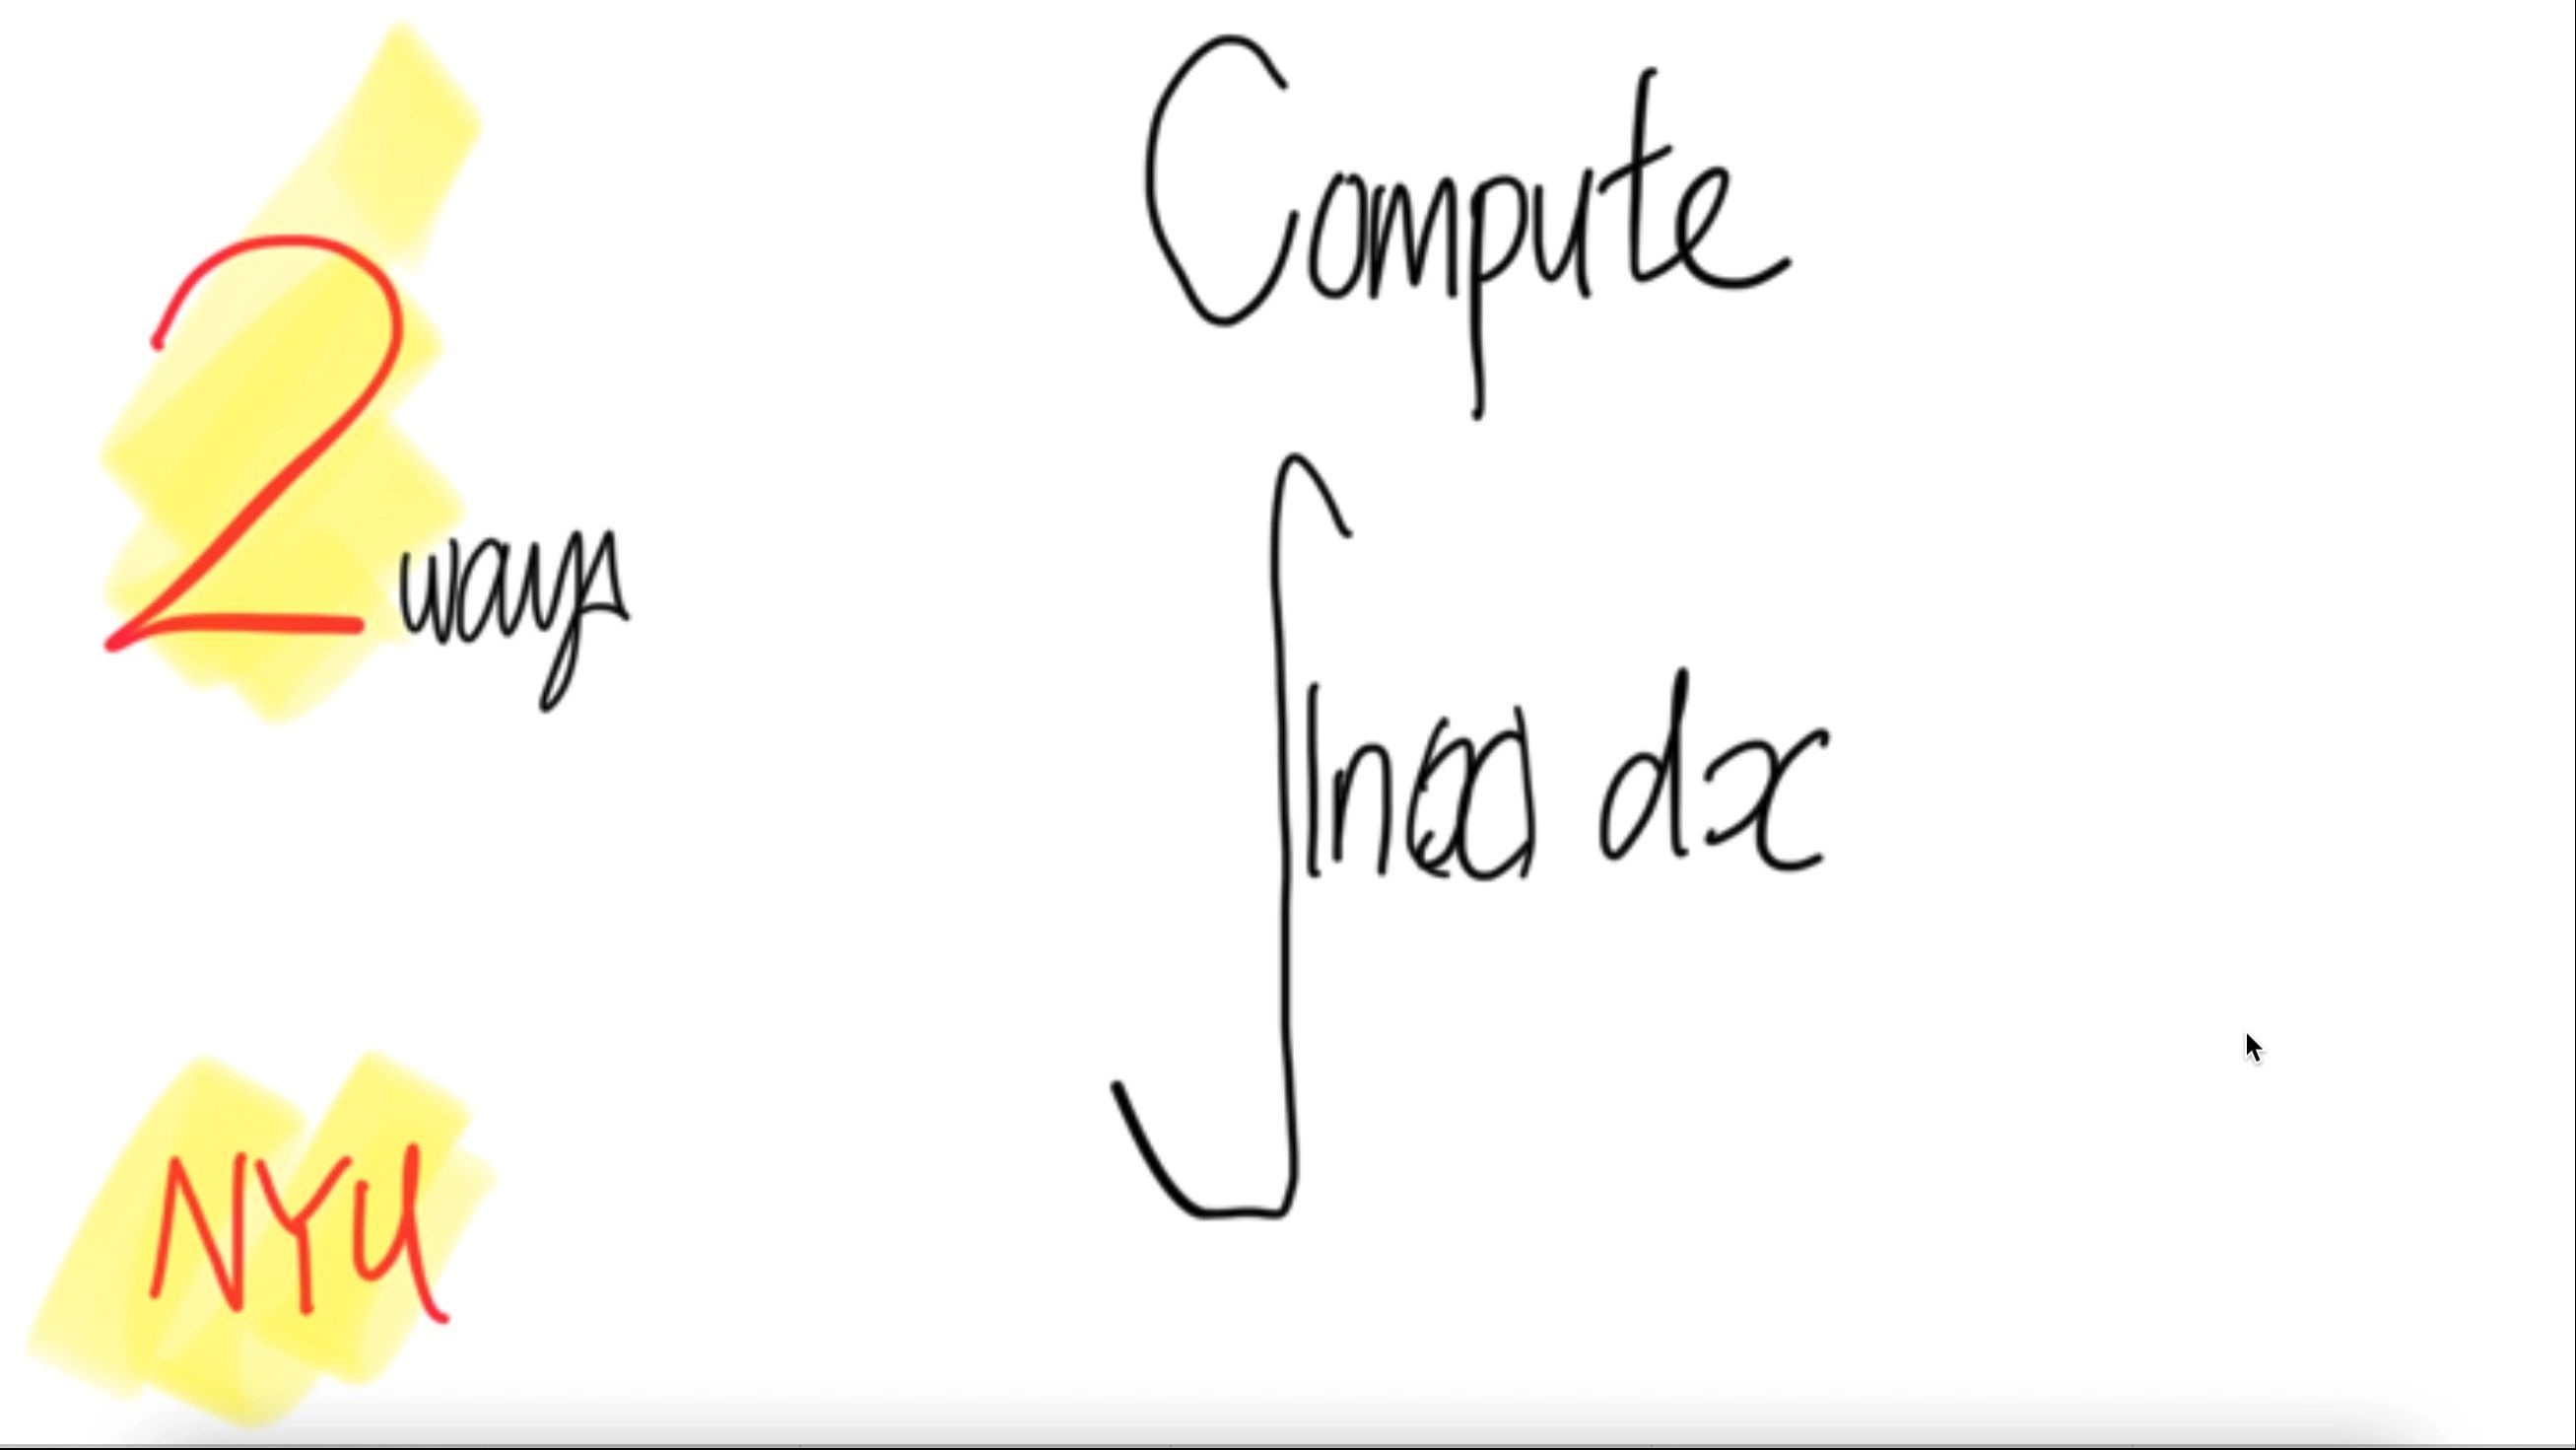 Compute
2 ways
∫ln(x) dx
NYU